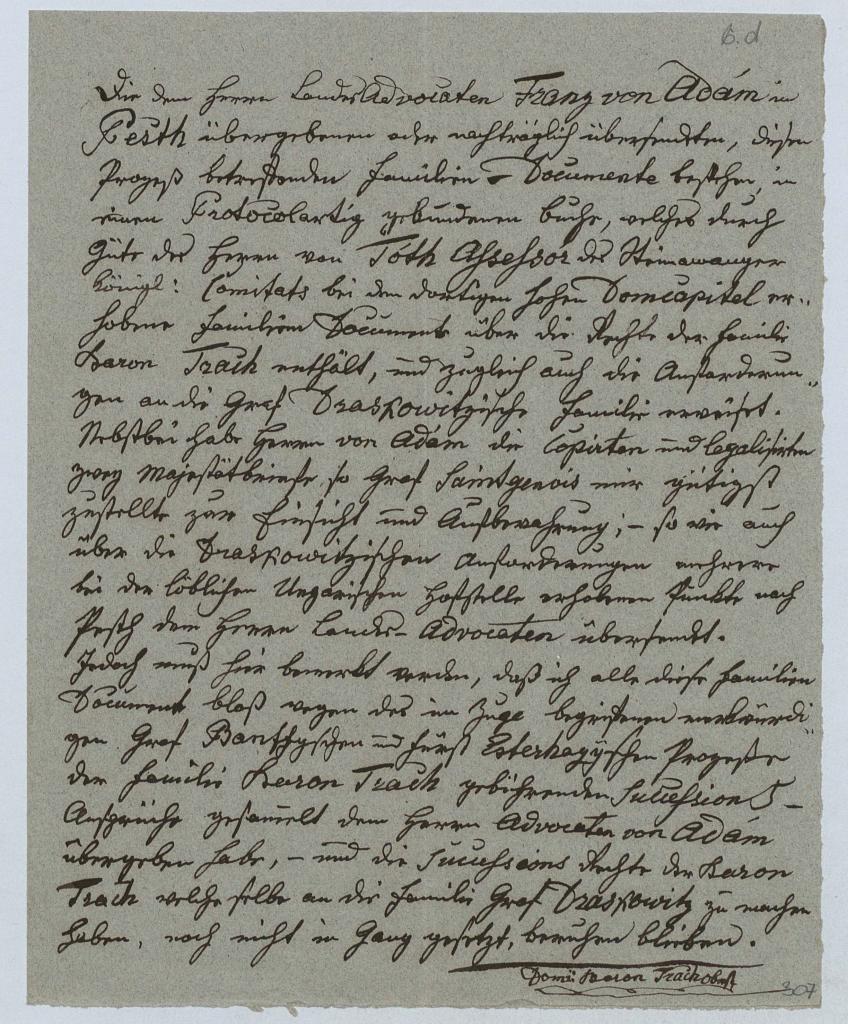 6.d
Die dem Herrn Landes Advocaten Franz von Adám in
Pesth übergebenen oder nachträglich übersendten, diesen
Prozeß betreffenden Familien-Documente bestehen, in
einen Protocolartig gebundenen Buche, welches durch
Güte des Herrn von Tóth Assessor des Steinamanger
königl: Comitats bei dem dortigen hohen Domcapitel er„
hobene Familien Documente über die Rechte der Familie
Baron Trach enthält, und zugleich auch die Anforderun„
gen an die Graf Draskowitzische Familie erweiset.
Nebstbei habe Herrn von Adám die Copirten und legalisirten
zwey Majestätbriefe so Graf Saintgenois mir gütigst
zustellte zur Einsicht und Aufbewahrung; – so wie auch
über die Draskowitzischen Anforderungen mehrere
bei der löblichen Ungarischen Hofstelle erhobenen Punkte nach
Pesth dem Herrn Landes-Advocaten übersendt.
Jedoch muß hier bemerkt werden, daß ich alle diese Familien
Documente bloß wegen des im Zuge begriffenen merkwürdi„
gen Graf Banffyschen und Fürst Esterhazyschen Prozeße
der Familie Baron Trach gebührenden Sucession S–
Ansprüche gesammelt dem Herrn Advocaten von Adám
übergeben habe, – und die Sucessions Rechte der Baron
Trach welche selbe an die Familie Graf Draskowitz zu machen
haben, noch nicht in Gang gesetzt, beruhen blieben.
Baron Trach Obrst
307